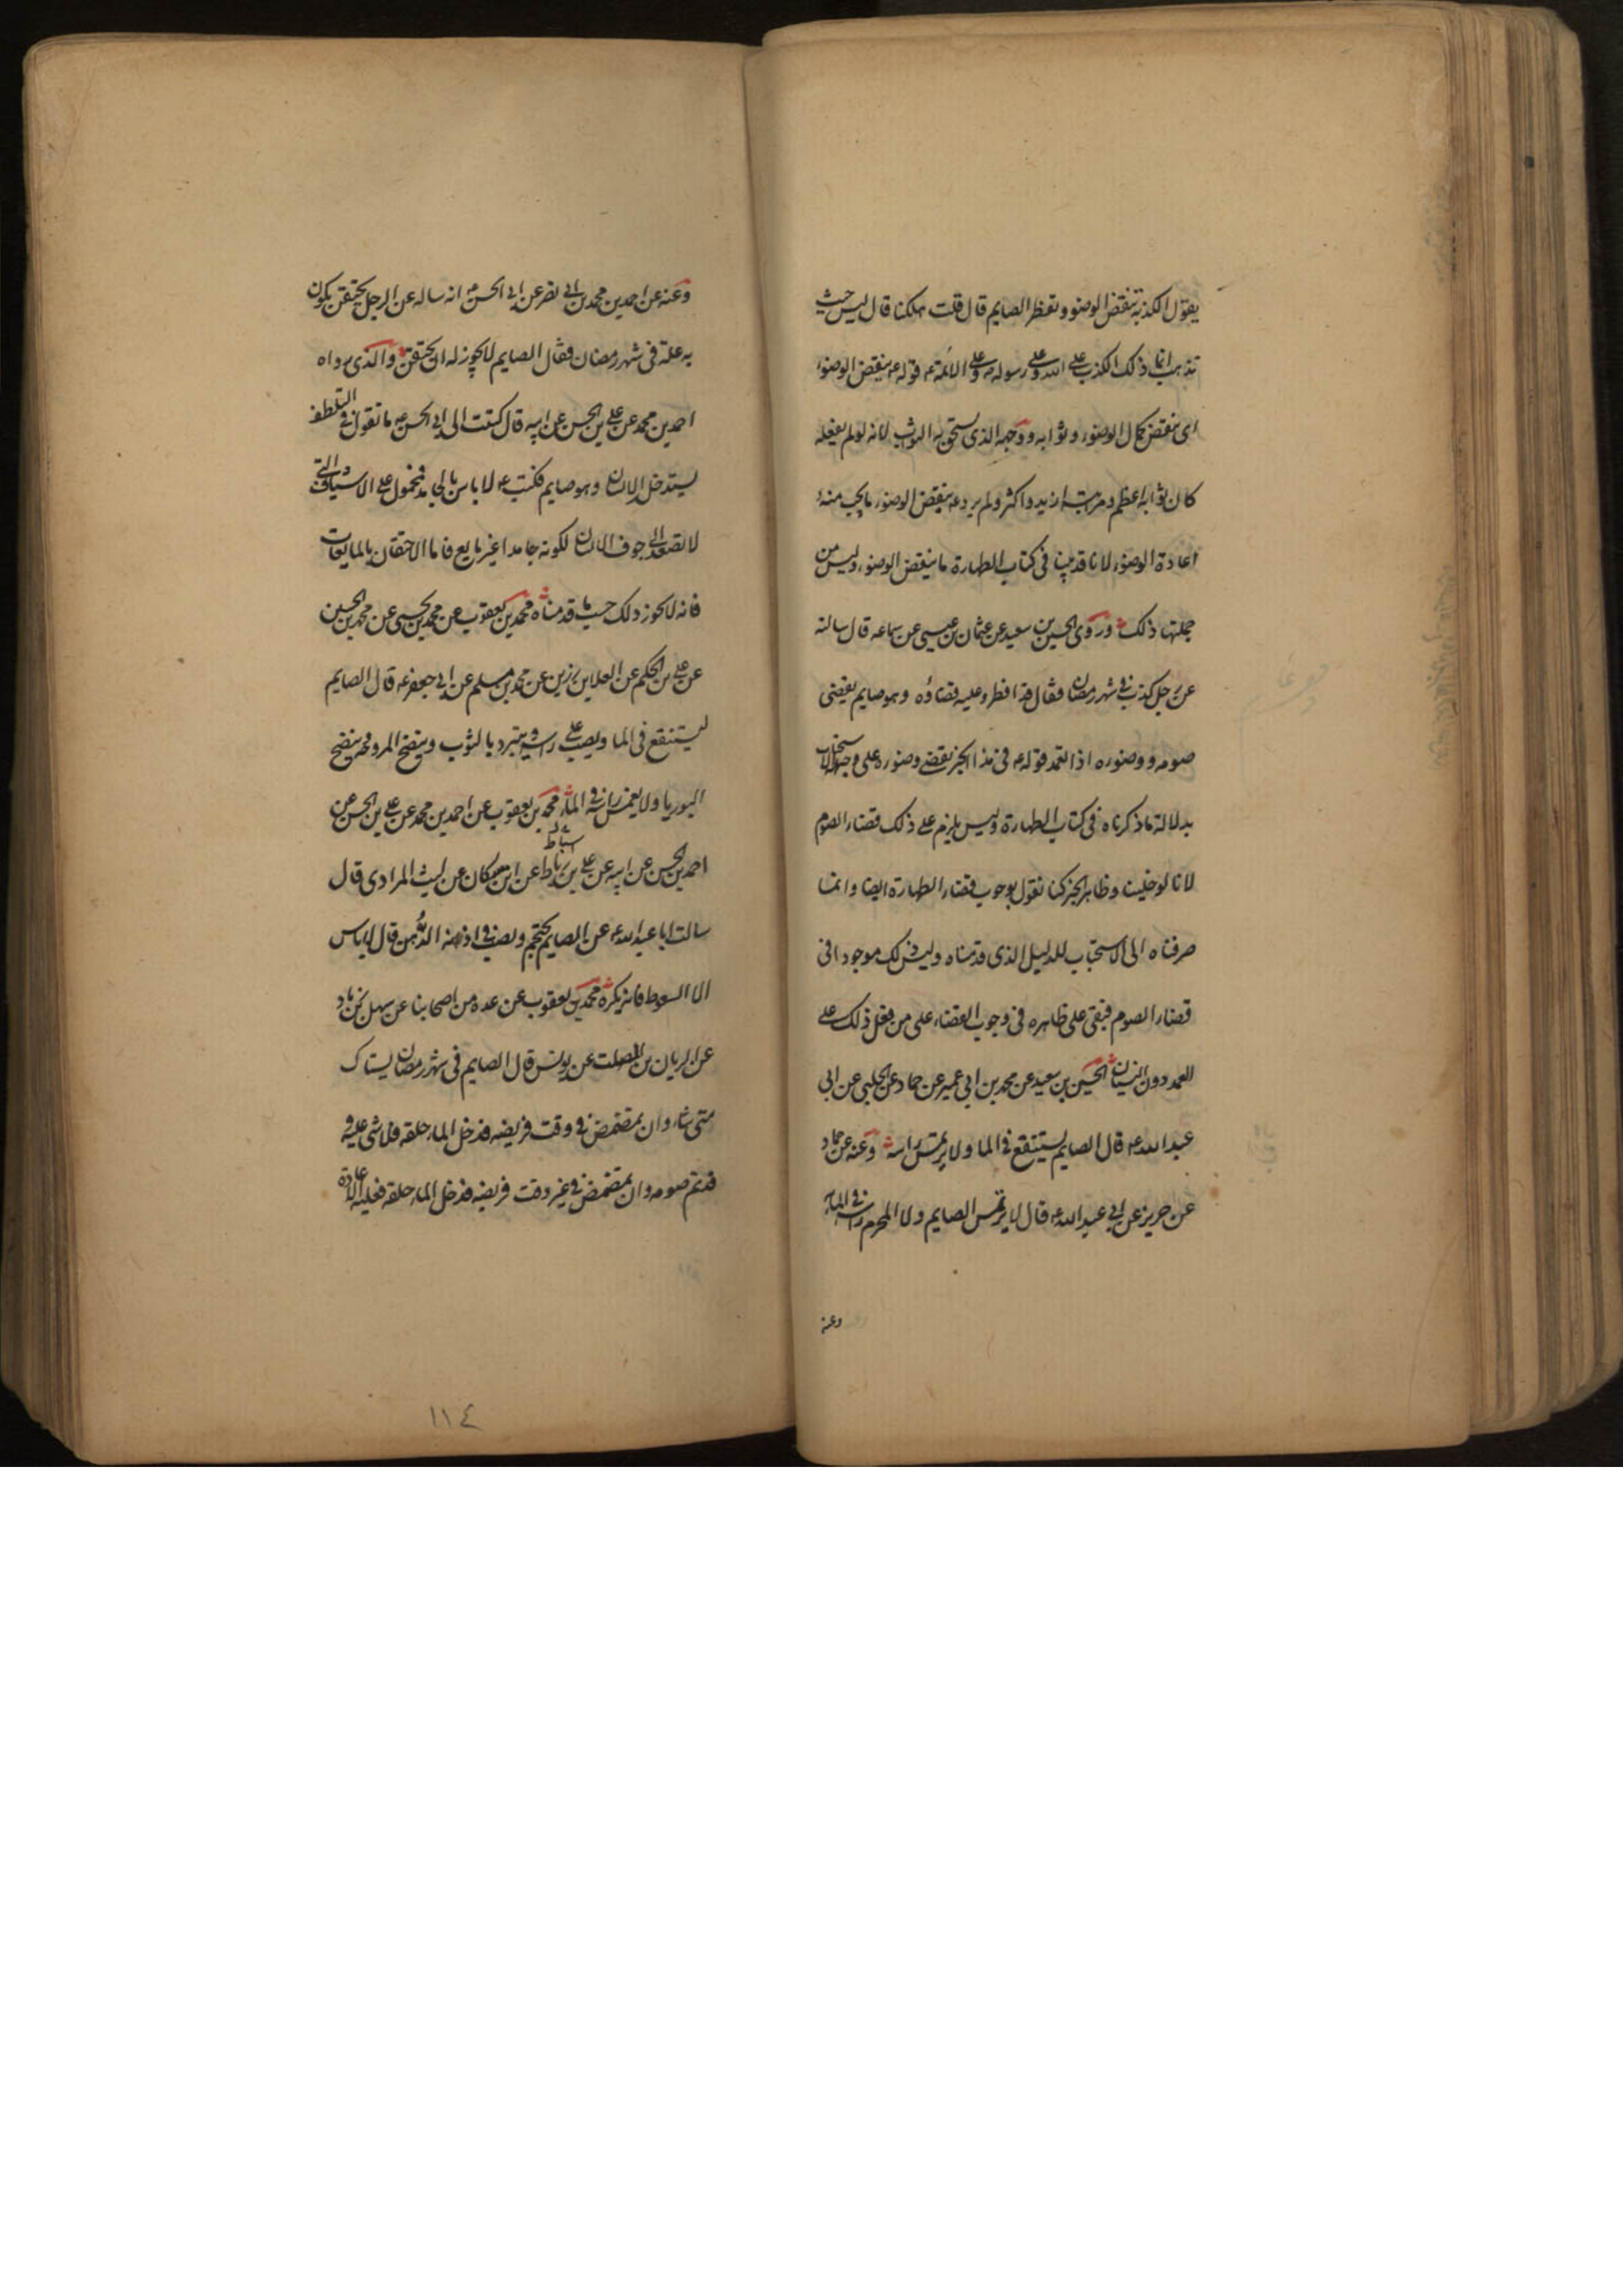 يقول الكذبة تنقض الوضوء وتفطر الصايم قال قلت هلكنا قال ليس حيث
تذهب انما ذلك الكذب على الله وعلى رسوله ص وعلى الائمة ع قوله ع ينقض الوضوء
اى ينقض كمال الوضوء وثوابه ووجهه الذى يستحق به الثواب لانه لو لم يفعله
كان ثوابه اعظم ومرتبته ازيد واكثر ولم يرد ع ينقض الوضوء ما يجب منه
اعادة الوضوء لانا قد بينا فى كتاب الطهارة ما ينقض الوضوء وليس من
جملتها ذلك وروى الحسين بن سعيد عن عثمان بن عيسى عن سماعه قال سالته
عن رجل كذب فى شهر رمضان فقال قد افطر وعليه قضاؤه وهو صايم يقضى
صومه ووضوءه اذا تعمد قوله ع فى هذا الخبر يقضى وضوءه على وجه الاستحباب
بدلالة ما ذكرناه فى كتاب الطهارة وليس يلزم على ذلك قضاء الصوم
لانا لو خلينا وظاهر الخبر كنا نقول بوجوب قضاء الطهارة ايضا وانما
صرفناه الى الاستحباب للدليل الذى قدمناه وليس ذلك موجودا فى
قضاء الصوم فبقى على ظاهره فى وجوب القضاء على من فعل ذلك على
العمد دون النسيان الحسين بن سعيد عن محمد بن ابي عمير عن حماد عن الحلبى عن ابى
عبد الله ع قال الصايم يستنقع فى الما ولا يرتمس راسه وعنه عن حماد
عن حريز عن ابي عبد الله ع قال لا يرتمس الصايم ولا المحرم راسه فى الماء
وعنه
وعنه عن احمد بن محمد بن ابي نصر عن ابي الحسن ع انه ساله عن الرجل يحتقن يكون
به علة فى شهر رمضان فقال الصايم لا يجوز له ان يحتقن والذى رواه
احمد بن محمد عن على بن الحسن عن ابيه قال كتبت الى ابي الحسن ع ما تقول فى التلطف
يستدخله الانسان وهو صايم فكتب ع لا باس بالجامد فمحمول على الاشياف التى
لا تصعد الى جوف الانسان لكونه جامدا غير مايع فاما الاحتقان بالمايعات
فانه لا يجوز ذلك حسب ما قدمناه محمد بن يعقوب عن محمد بن يحيى عن محمد بن الحسين
عن على بن الحكم عن العلا بن رزين عن محمد بن مسلم عن ابي جعفر ع قال الصايم
يستنقع فى الما ويصب على راسه ويتبرد بالثوب وينضح المروحه وينضح
البوريا ولا يغمس راسه فى الماء محمد بن يعقوب عن احمد بن محمد عن على بن الحسن عن
اسباط
احمد بن الحسن عن ابيه عن على بن رباط عن ابن مسكان عن ليث المرادى قال
سالت ابا عبد الله ع عن الصايم يحتجم ويصب فى اذنه الدهن قال لا باس
الا السعوط فانه يكره محمد بن يعقوب عن عده من اصحابنا عن سهل بن زياد
عن الريان بن الصلت عن يونس قال الصايم فى شهر رمضان يستاك
متى شاء وان تمضمض فى وقت فريضه فدخل الماء حلقه فلا شى عليه و
قد تم صومه وان تمضمض فى غير وقت فريضه فدخل الماء حلقه فعليه الاعادة
١١٤